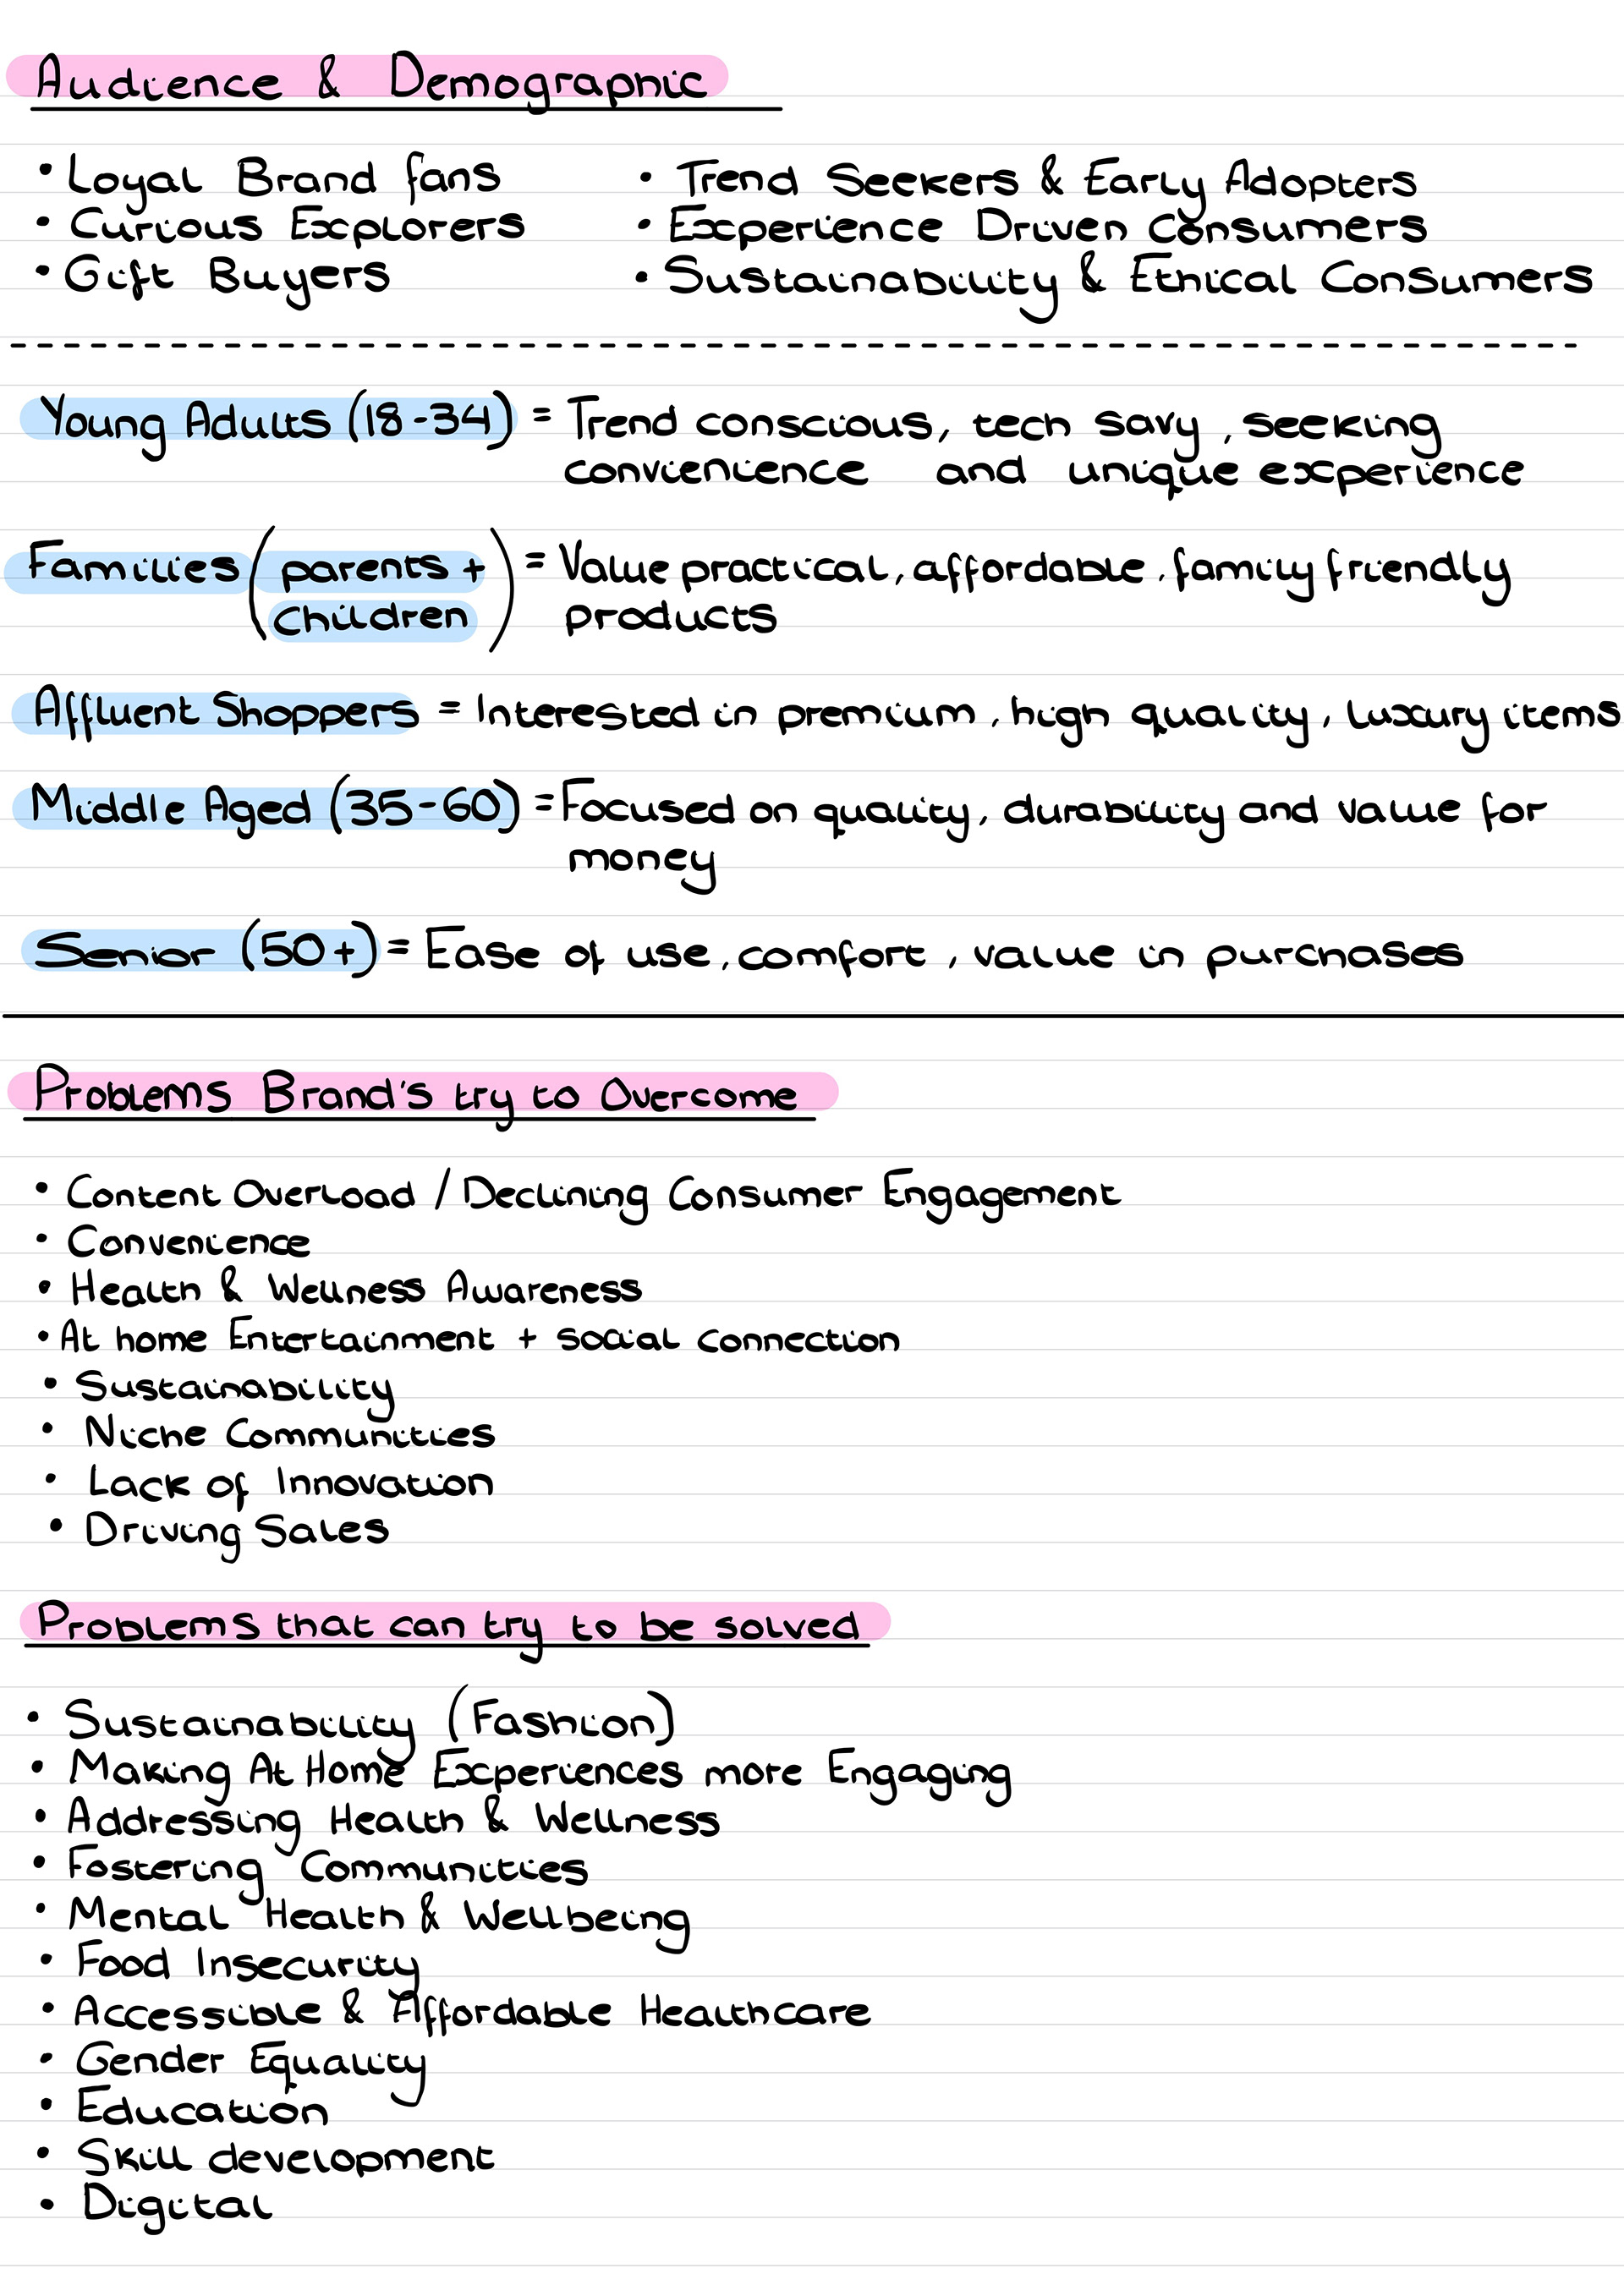 Audience & Demographic
• Loyal Brand fans
• Curious Explorers
• Gift Buyers
• Trend Seekers & Early Adopters
• Experience Driven Consumers
• Sustainability & Ethical Consumers
Young Adults (18-34) = Trend conscious, tech savy, seeking
convienience and unique experience
Families (parents + children) = Value practical, affordable, family friendly
products
Affluent Shoppers = Interested in premium, high quality, luxury items
Middle Aged (35-60) = Focused on quality, durability and value for
money
Senior (50+) = Ease of use, comfort, value in purchases
Problems Brand's try to Overcome
• Content Overload / Declining Consumer Engagement
• Convenience
• Health & Wellness Awareness
• At home Entertainment + social connection
• Sustainability
• Niche Communities
• Lack of Innovation
• Driving Sales
Problems that can try to be solved
• Sustainability (Fashion)
• Making At Home Experiences more Engaging
• Addressing Health & Wellness
• Fostering Communities
• Mental Health & Wellbeing
• Food Insecurity
• Accessible & Affordable Healthcare
• Gender Equality
• Education
• Skill development
• Digital